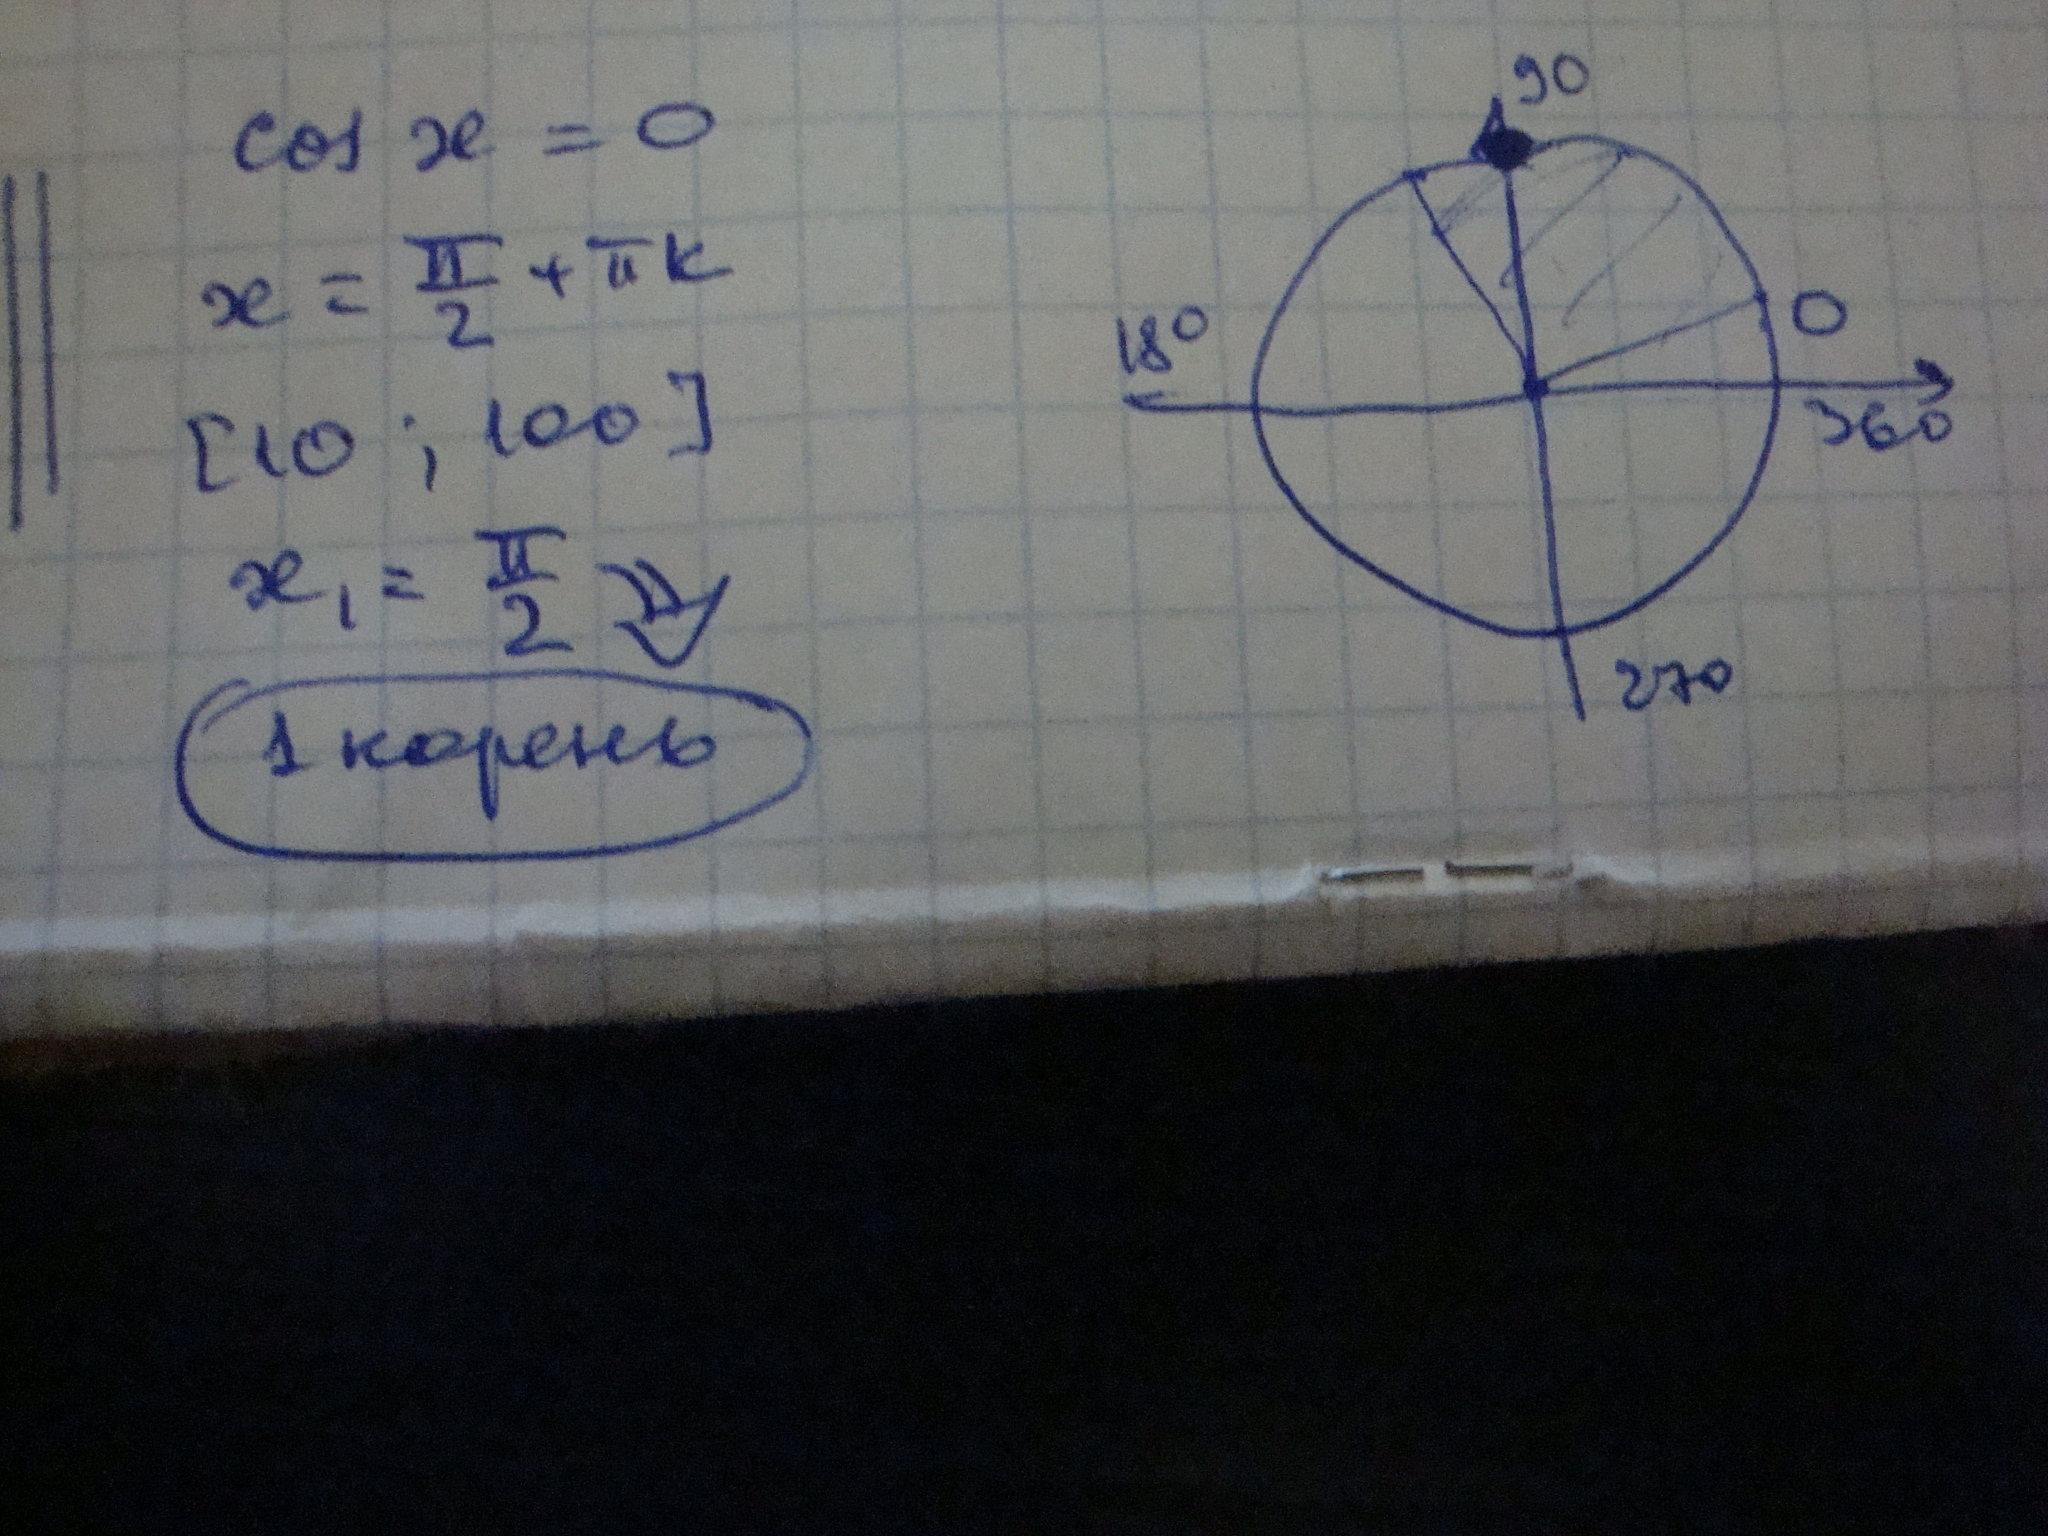 cos x = 0
x = π/2 + πk
[10 ; 100]
x₁ = π/2 ⇒
1 корень
90
180
0
360
270